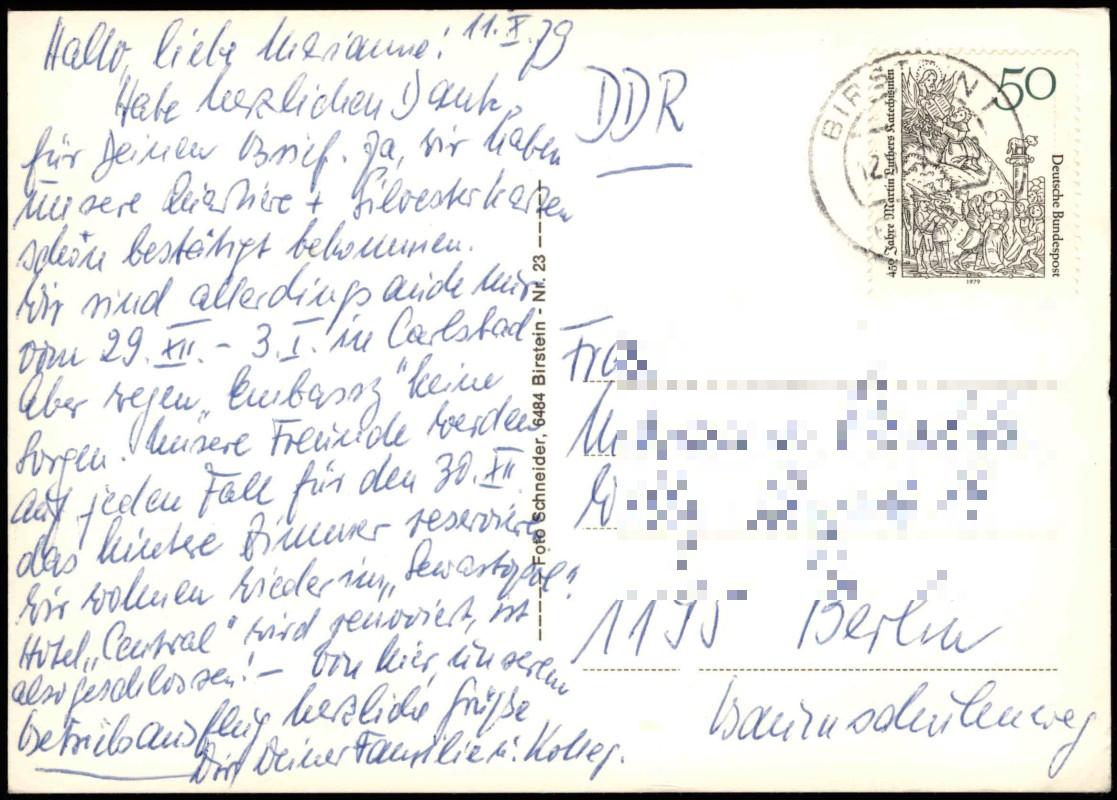 11.X.79
Hallo, liebe Marianne!
Habe herzlichen Dank
für Deinen Brief. Ja, wir haben
unsere Quartiere + Silvesterkarten
schön bestätigt bekommen.
Wir sind allerdings auch nur
vom 29.XII. - 3.I. in Carlsbad
Aber wegen „Embassy" keine
Sorgen. Unsere Freunde werden
auf jeden Fall für den 30.XII.
das hintere Zimmer reservieren
Wir wohnen wieder im „Sewastopol"
Hotel „Central" wird renoviert, ist
also geschlossen! - Von hier, unserem
Betriebsausflug herzliche Grüße
Dir, Deiner Familie u. Kolleg.
Foto Schneider, 6484 Birstein - Nr. 23
DDR
BIRSTEIN 1
12.
50
Deutsche Bundespost
450 Jahre Martin Luthers Katechismen
1979
1195 Berlin
Baumschulenweg